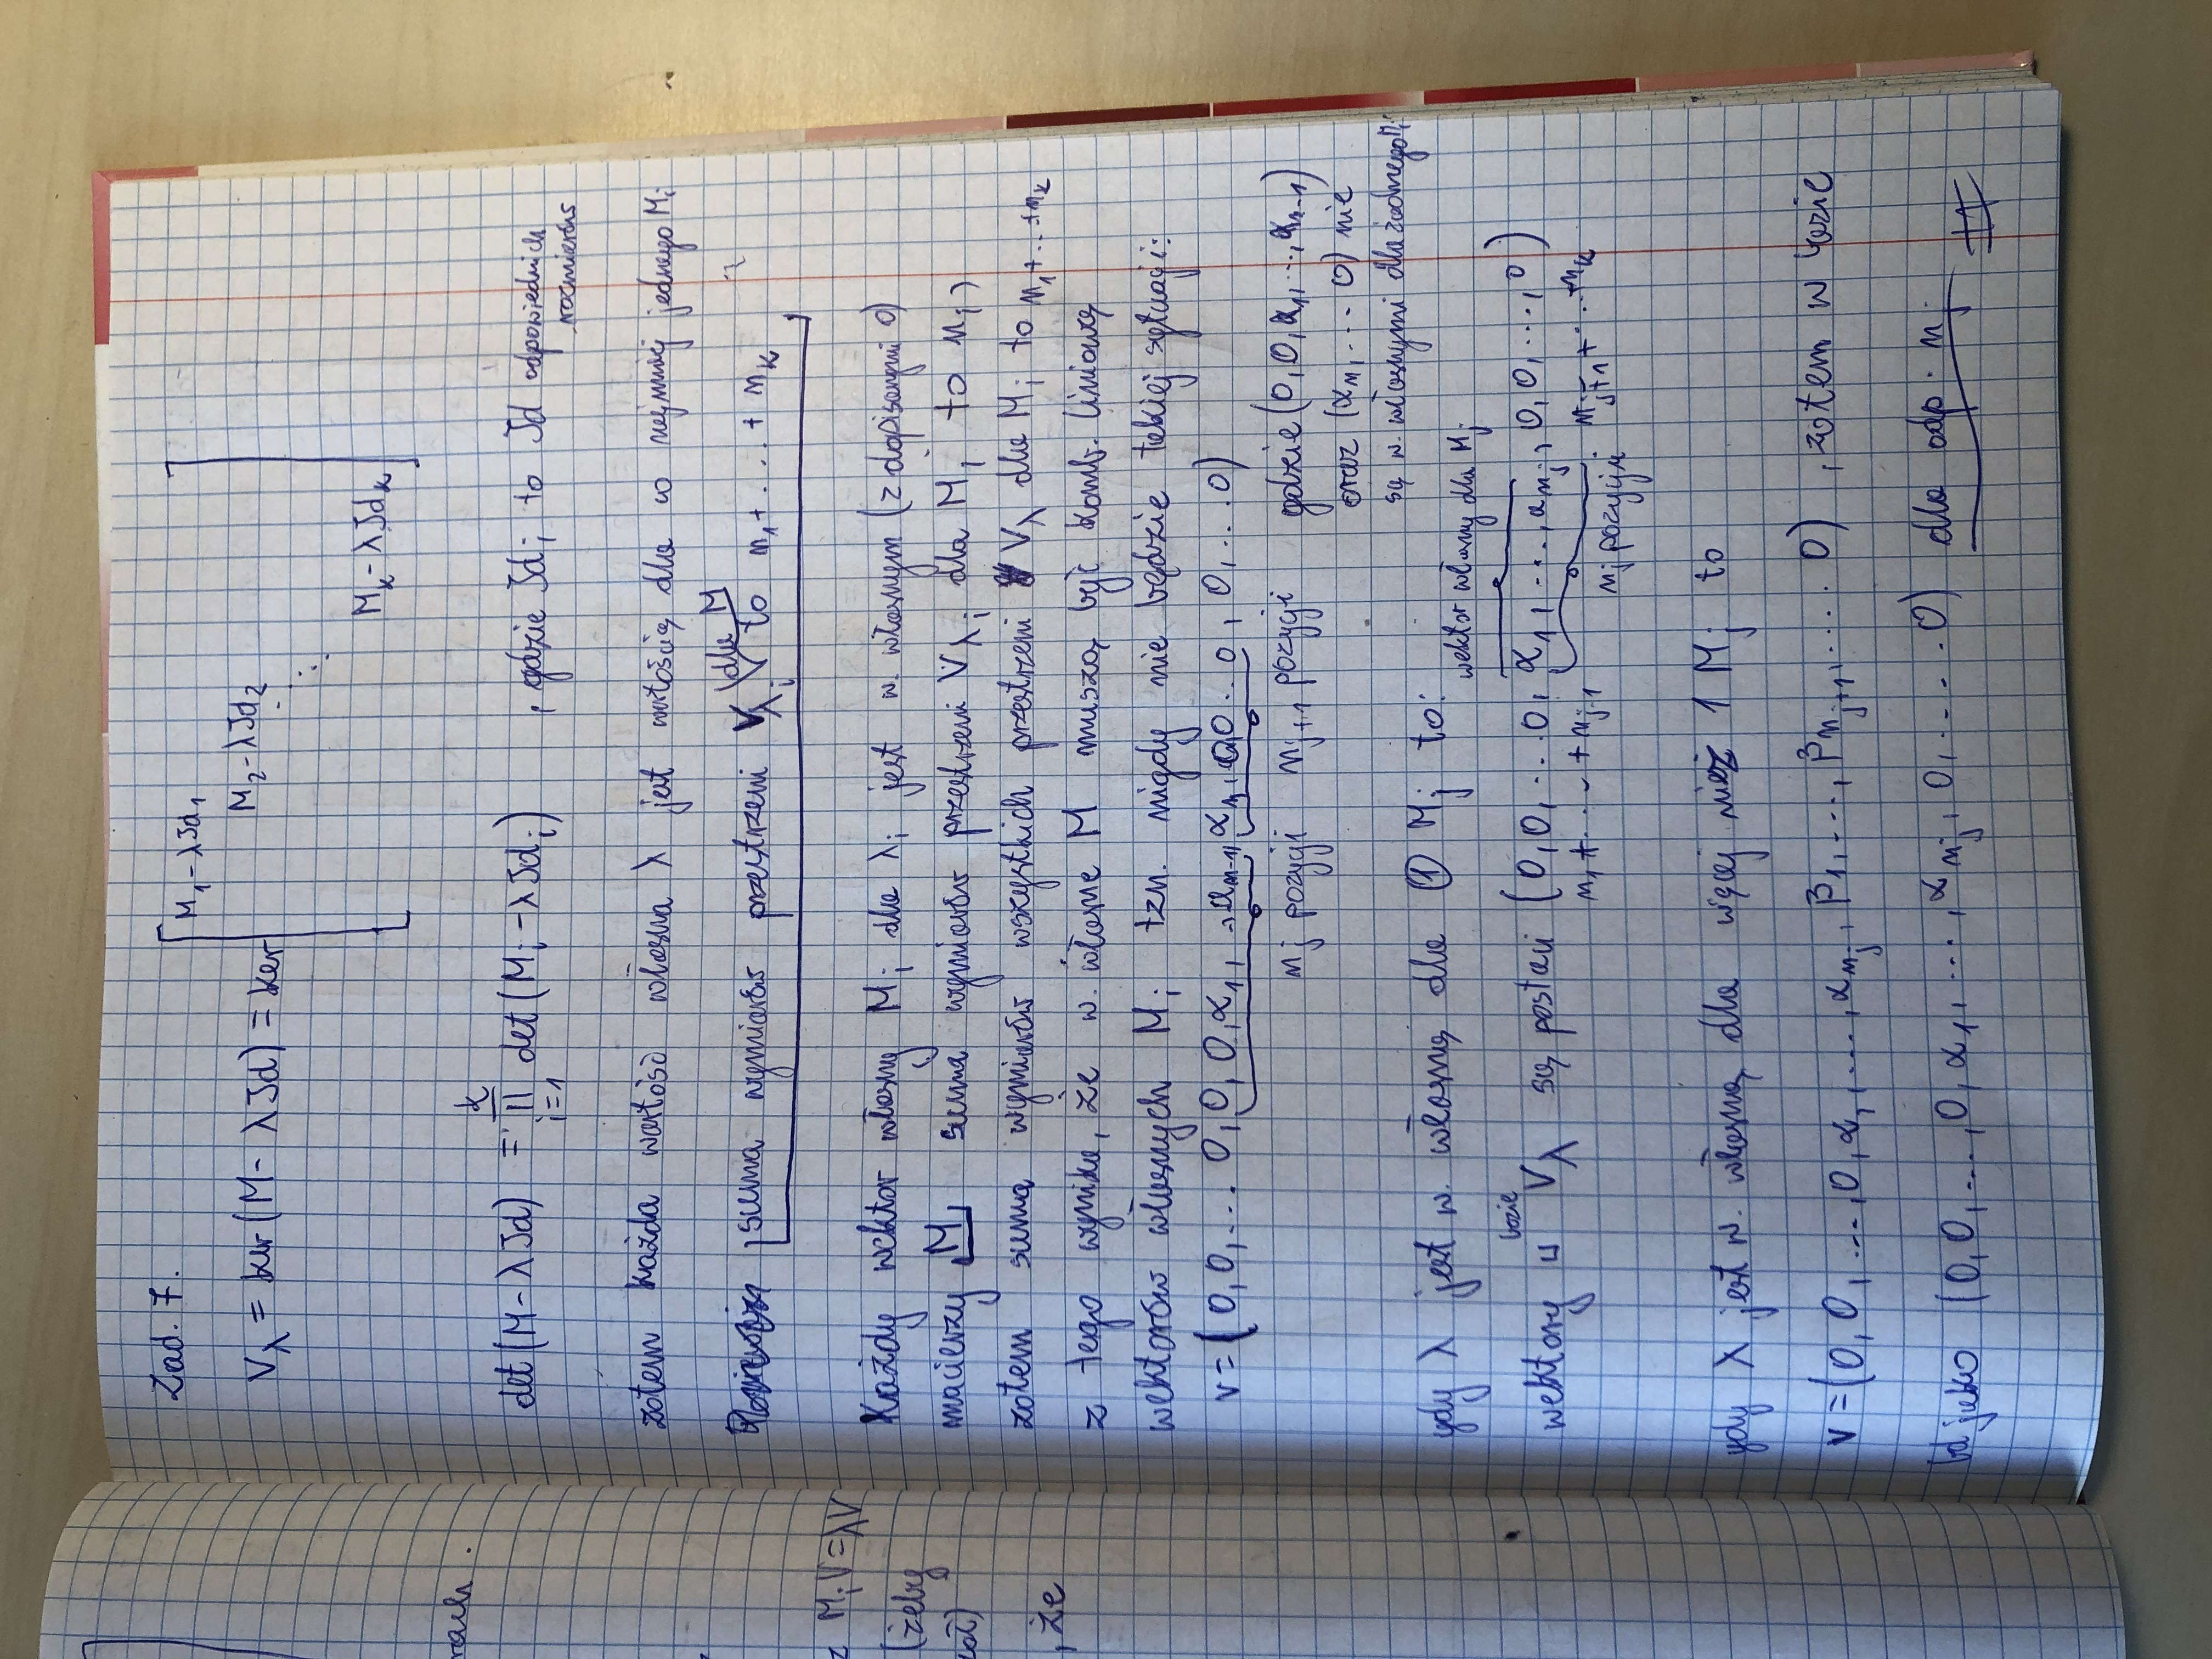 rach.
z MᵢV=λV
(żeby
, że
Zad. 7.
V_λ = ker (M - λJd) = ker [ M₁-λJd₁
M₂-λJd₂
⋱
M_k-λJd_k ]
det (M - λJd) = ∏_{i=1}^{k} det (Mᵢ - λJdᵢ) , gdzie Jdᵢ to Jd odpowiednich
rozmiarów
zatem każda wartość własna λ jest wartością dla co najmniej jednego Mᵢ
suma wymiarów przestrzeni V_λᵢ dla M to n₁+...+n_k
Każdy wektor własny Mᵢ dla λᵢ jest w. własnym (z dopisanymi 0)
macierzy M suma wymiarów przestrzeni V_λᵢ dla Mᵢ to nᵢ,
zatem suma wymiarów wszystkich przestrzeni V_λ dla Mᵢ to n₁+...+n_k
z tego wynika, że w. własne M muszą być komb. liniową
wektorów własnych Mᵢ tzn. nigdy nie będzie takiej sytuacji:
v = (0,0,... 0,0,0,α₁, ..,α_{n-1},α_n,0,0...0, 0,...0)
n_j pozycji n_{j+1} pozycji gdzie (0,0,α₁,...,α_{n-1})
oraz (α_n,... 0) nie
są w. własnymi dla żadnego Mᵢ
gdy λ jest w. własną dla ① M_j to:
wektor własny dla M_j
bazie
wektory w V_λ są postaci (0,0,...0, α₁,...,α_{n_j}, 0,0,...,0)
n₁+...+n_{j-1} n_j pozycji n_{j+1}+...+n_k
gdy λ jest w. własną dla więcej niż 1 M_j to
v = (0,0,...,0,α₁,...,α_{n_j}, β₁,...,β_{n_{j+1}},.... 0) , zatem w bazie
jako (0,0,...,0,α₁,...,α_{n_j},0,....0) dla odp. n_j